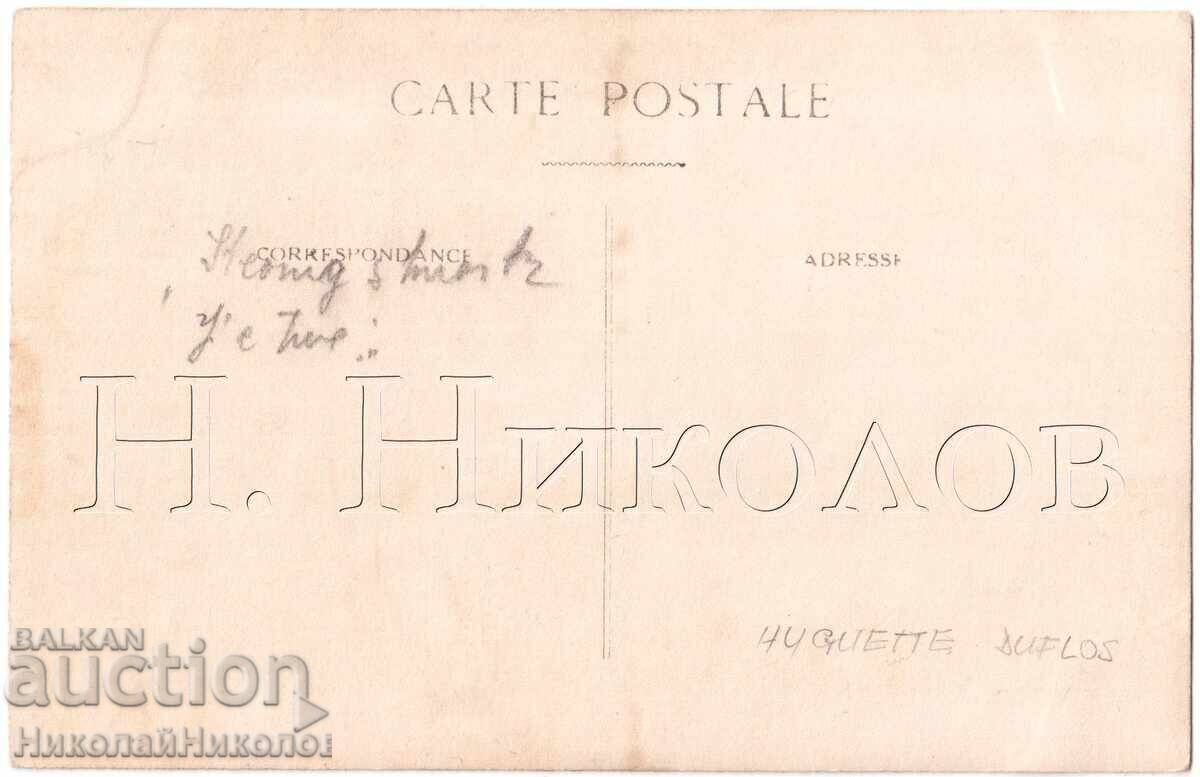 CARTE POSTALE
CORRESPONDANCE
ADRESSE
Н. Николов
HUGUETTE DUFLOS
BALKAN
auction
НиколайНиколов